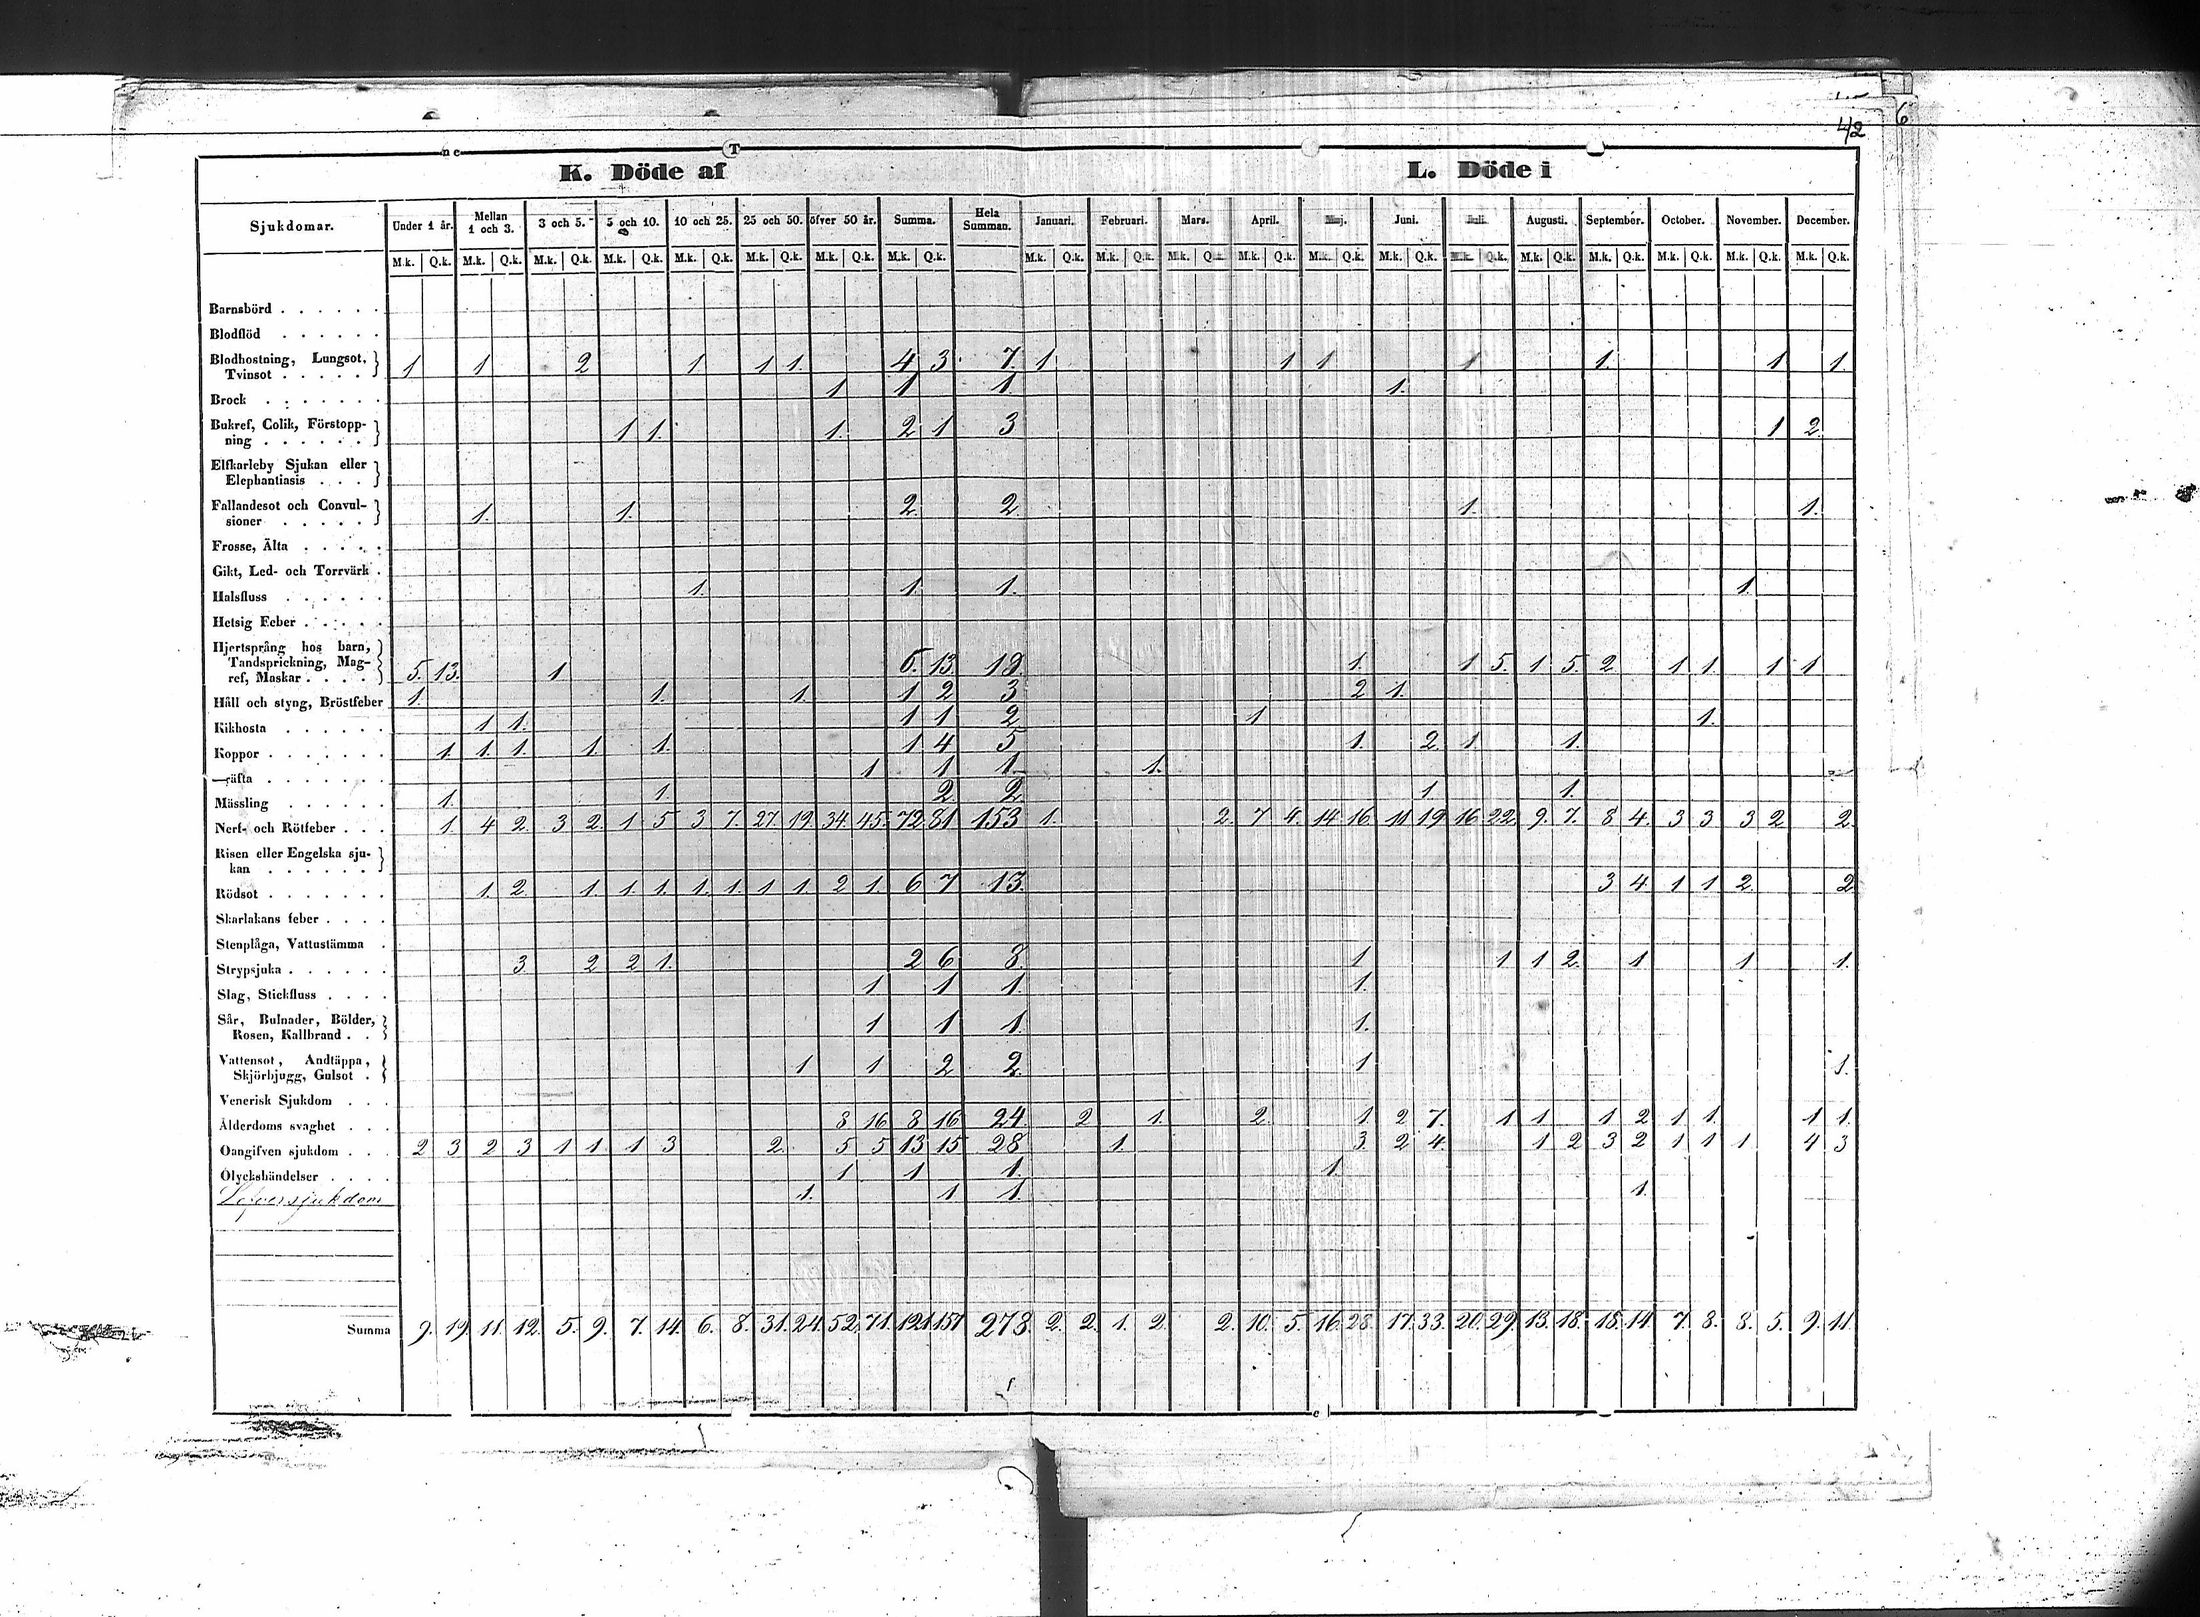 42
6
K. Döde af L. Döde i
Sjukdomar. Under 1 år. Mellan 1 och 3. 3 och 5. 5 och 10. 10 och 25. 25 och 50. öfver 50 år. Summa. Hela Summan. Januari. Februari. Mars. April. Maj. Juni. Juli. Augusti. September. October. November. December.
M.k. Q.k. M.k. Q.k. M.k. Q.k. M.k. Q.k. M.k. Q.k. M.k. Q.k. M.k. Q.k. M.k. Q.k. M.k. Q.k. M.k. Q.k. M.k. Q.k. M.k. Q.k. M.k. Q.k. M.k. Q.k. M.k. Q.k. M.k. Q.k. M.k. Q.k. M.k. Q.k. M.k. Q.k. M.k. Q.k.
Barnsbörd . . . . . .
Blodflöd . . . . . .
Blodhostning, Lungsot,
Tvinsot . . . . . 1 1 2 1 1 1. 4 3. 7. 1. 1 1 1 1. 1 1
Brock . . . . . . . 1 1 1. 1.
Bukref, Colik, Förstopp-
ning . . . . . . 1 1. 1. 2 1 3 1 2.
Elfkarleby Sjukan eller
Elephantiasis . . .
Fallandesot och Convul-
sioner . . . . . 1. 1. 2. 2. 1. 1.
Frosse, Älta . . . . .
Gikt, Led- och Torrvärk .
Halsfluss . . . . . . 1. 1. 1. 1.
Hetsig Feber . . . . .
Hjertsprång hos barn,
Tandsprickning, Mag-
ref, Maskar . . . . 5. 13. 1 6. 13. 19. 1. 1 5. 1 5. 2 1 1. 1 1
Håll och styng, Bröstfeber 1. 1. 1. 1 2 3 2 1.
Kikhosta . . . . . . 1 1. 1 1 2 1 1.
Koppor . . . . . . . 1. 1. 1. 1. 1. 1 4 5 1. 2. 1 1.
räfta . . . . . . . 1 1 1. 1.
Mässling . . . . . . 1. 1. 2 2 1 1.
Nerf- och Rötfeber . . . 1. 4 2. 3 2. 1 5 3 7. 27. 19. 34. 45. 72 81 153 1. 2. 7 4. 14 16. 11 19 16 22. 9. 7. 8 4. 3 3 3 2 2.
Risen eller Engelska sju-
kan . . . . . .
Rödsot . . . . . . . 1. 2. 1. 1. 1. 1. 1. 1 1. 2 1. 6 7 13. 3 4. 1 1 2. 2.
Skarlakans feber . . . .
Stenplåga, Vattustämma .
Strypsjuka . . . . . . 3 2 2 1. 2 6 8. 1 1 1 2. 1 1 1.
Slag, Stickfluss . . . . 1 1 1. 1.
Sår, Bulnader, Bölder,
Rosen, Kallbrand . . 1 1 1. 1.
Vattensot, Andtäppa,
Skjörbjugg, Gulsot . 1 1 2 2. 1 1.
Venerisk Sjukdom . . .
Ålderdoms svaghet . . . 8 16 8 16 24. 2 1. 2. 1 2 7. 1 1 1 2 1 1. 1 1.
Oangifven sjukdom . . . 2 3 2 3 1 1. 1 3 2. 5 5 13 15 28 1. 3. 2 4. 1 2 3 2 1 1 1 4 3
Olyckshändelser . . . . 1 1 1. 1.
Lefversjukdom 1. 1 1. 1.
Summa 9. 19. 11. 12. 5. 9. 7. 14. 6. 8. 31. 24. 52. 71. 121 157 278. 2. 2. 1. 2. 2. 10. 5. 16. 28. 17. 33. 20. 29. 13. 18. 18. 14. 7. 8. 8. 5. 9. 11.